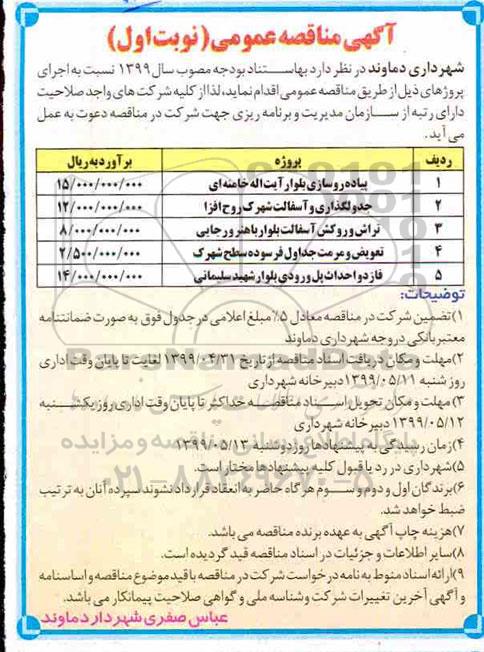 آگهی مناقصه عمومی (نوبت اول)
شهرداری دماوند در نظر دارد به استناد بودجه مصوب سال ۱۳۹۹ نسبت به اجرای
پروژهای ذیل از طریق مناقصه عمومی اقدام نماید، لذا از کلیه شرکت های واجد صلاحیت
دارای رتبه از سازمان مدیریت و برنامه ریزی جهت شرکت در مناقصه دعوت به عمل
می آید.
ردیف پروژه برآورد به ریال
۱ پیاده روسازی بلوار آیت اله خامنه ای ۱۵/۰۰۰/۰۰۰/۰۰۰
۲ جدولگذاری و آسفالت شهرک روح افزا ۱۲/۰۰۰/۰۰۰/۰۰۰
۳ تراش و روکش آسفالت بلوار باهنر و رجایی ۸/۰۰۰/۰۰۰/۰۰۰
۴ تعویض و مرمت جداول فرسوده سطح شهرک ۲/۵۰۰/۰۰۰/۰۰۰
۵ فاز دو احداث پل ورودی بلوار شهید سلیمانی ۱۴/۰۰۰/۰۰۰/۰۰۰
توضیحات:
۱) تضمین شرکت در مناقصه معادل ۵٪ مبلغ اعلامی در جدول فوق به صورت ضمانتنامه
معتبر بانکی در وجه شهرداری دماوند
۲) مهلت و مکان دریافت اسناد مناقصه از تاریخ ۱۳۹۹/۰۴/۳۱ لغایت تا پایان وقت اداری
روز شنبه ۱۳۹۹/۰۵/۱۱ دبیرخانه شهرداری
۳) مهلت و مکان تحویل اسناد مناقصه حداکثر تا پایان وقت اداری روز یکشنبه
۱۳۹۹/۰۵/۱۲ دبیرخانه شهرداری
۴) زمان رسیدگی به پیشنهادها روز دوشنبه ۱۳۹۹/۰۵/۱۳
۵) شهرداری در رد یا قبول کلیه پیشنهادها مختار است.
۶) برندگان اول و دوم و سوم هرگاه حاضر به انعقاد قرارداد نشوند سپرده آنان به ترتیب
ضبط خواهد شد.
۷) هزینه چاپ آگهی به عهده برنده مناقصه می باشد.
۸) سایر اطلاعات و جزئیات در اسناد مناقصه قید گردیده است.
۹) ارائه اسناد منوط به نامه درخواست شرکت در مناقصه با قید موضوع مناقصه و اساسنامه
و آگهی آخرین تغییرات شرکت و شناسه ملی و گواهی صلاحیت پیمانکار می باشد.
عباس صفری شهردار دماوند